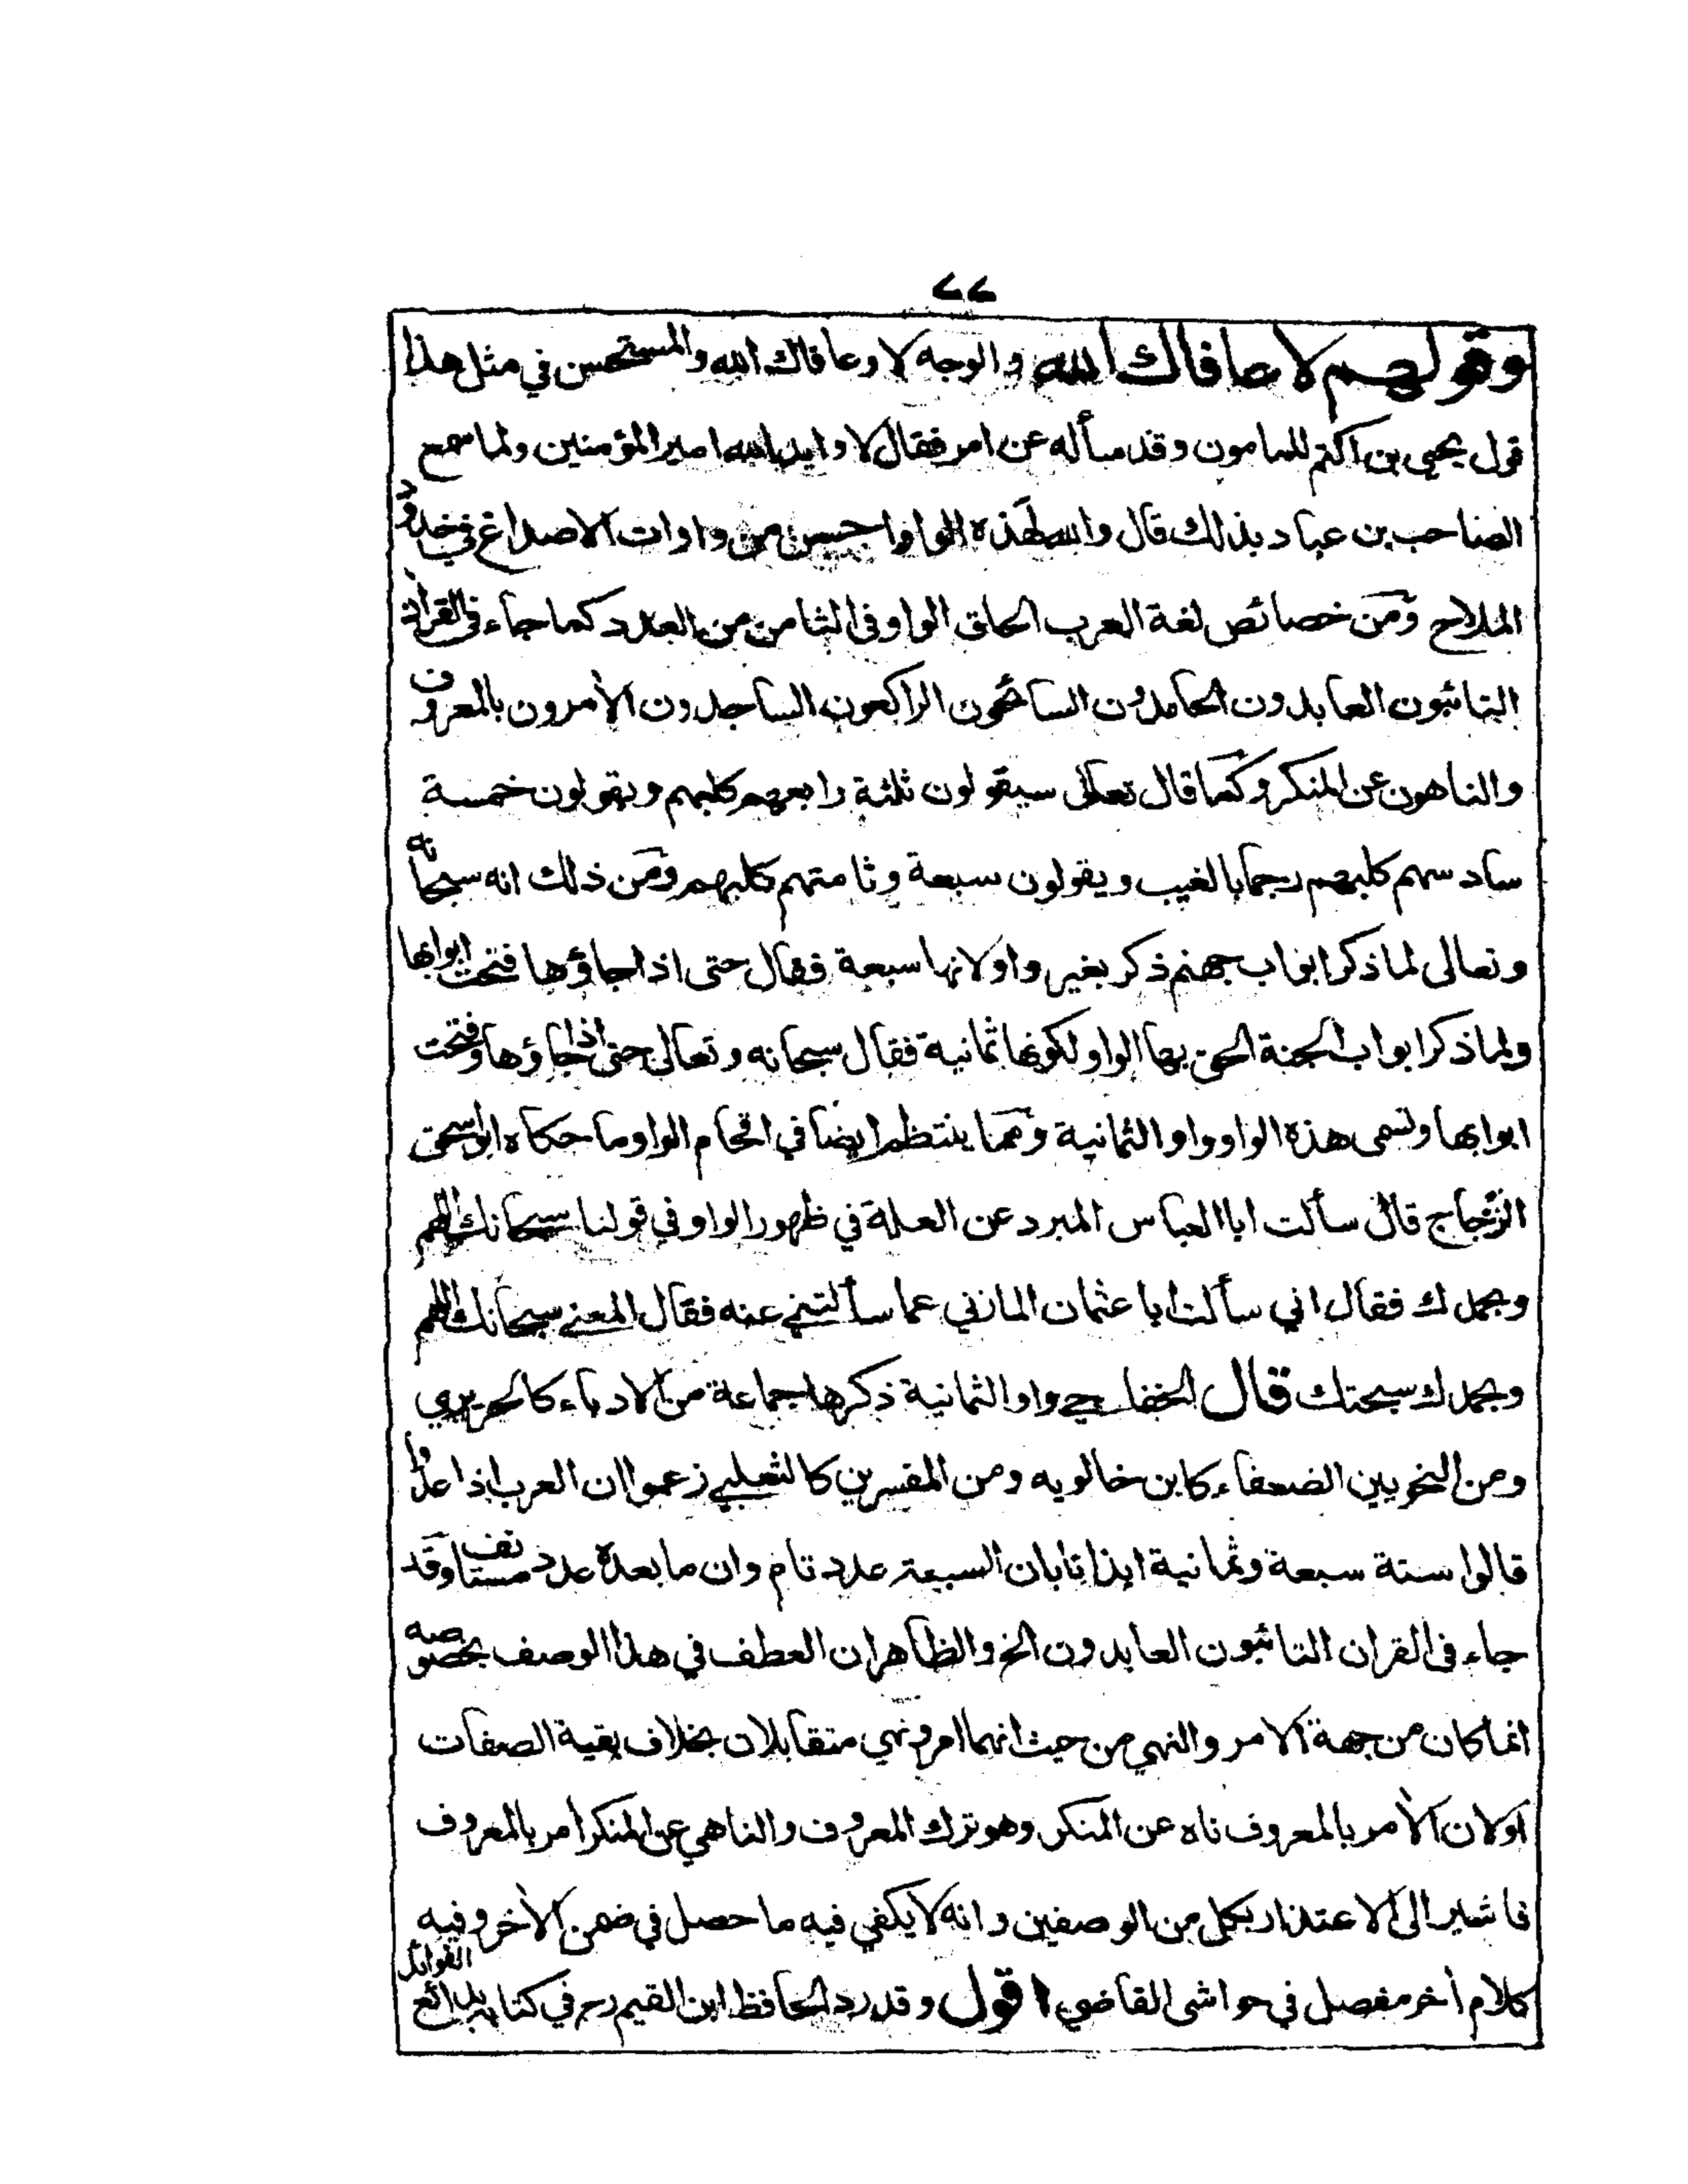 ٧٧
وقولهم لا عافاك الله والوجه لا وعافاك الله والمستحسن في مثل هذا
قول يحيى بن اكثم للمامون وقد سأله عن امر فقال لا وايد الله امير المؤمنين ولما سمع
الصاحب بن عباد بذالك قال والله لهذه الواو احسن من واوات الاصداغ في خدود
الملاح ومن خصائص لغة العرب الحاق الواو فى الثامن من العدد كما جاء فى القرآن
التائبون العابدون الحامدون السائحون الراكعون الساجدون الآمرون بالمعروف
والناهون عن المنكر وكما قال تعالى سيقولون ثلثة رابعهم كلبهم ويقولون خمسة
سادسهم كلبهم رجما بالغيب ويقولون سبعة وثامنهم كلبهم ومن ذلك انه سبحانه
وتعالى لما ذكر ابواب جهنم ذكر بغير واو لانها سبعة فقال حتى اذا جاؤها فتحت ابوابها
ولما ذكر ابواب الجنة الحق بها الواو لكونها ثمانية فقال سبحانه وتعالى حتى اذا جاؤها وفتحت
ابوابها وتسمى هذه الواو واو الثمانية ومما ينتظم ايضا في اقحام الواو ما حكاه ابواسحق
الزجاج قال سألت ابا العباس المبرد عن العلة في ظهور الواو فى قولنا سبحانك اللهم
وبحمدك فقال اني سألت ابا عثمان المازني عما سألتني عنه فقال المعنى سبحانك اللهم
وبحمدك سبحتك قال الخفاجي واو الثمانية ذكرها جماعة من الادباء كالحريري
ومن النحويين الضعفاء كابن خالويه ومن المفسرين كالثعلبي زعموا ان العرب اذا عدوا
قالوا ستة سبعة وثمانية ايذانا بان السبعة عدد تام وان ما بعده عدد مستانف وقد
جاء فى القران التائبون العابدون الخ والظاهر ان العطف في هذا الوصف بخصوصه
انما كان من جهة الامر والنهي من حيث انهما امر ونهي متقابلان بخلاف بقية الصفات
اولان الآمر بالمعروف ناه عن المنكر وهو ترك المعروف والناهي عن المنكر امر بالمعروف
فاشير الى الاعتذار بكل من الوصفين وانه لا يكفي فيه ما حصل في ضمن الآخر وفيه
كلام أخر مفصل في حواشى القاضي اقول وقد رد الحافظ ابن القيم رح في كتابه بدائع الفوائد